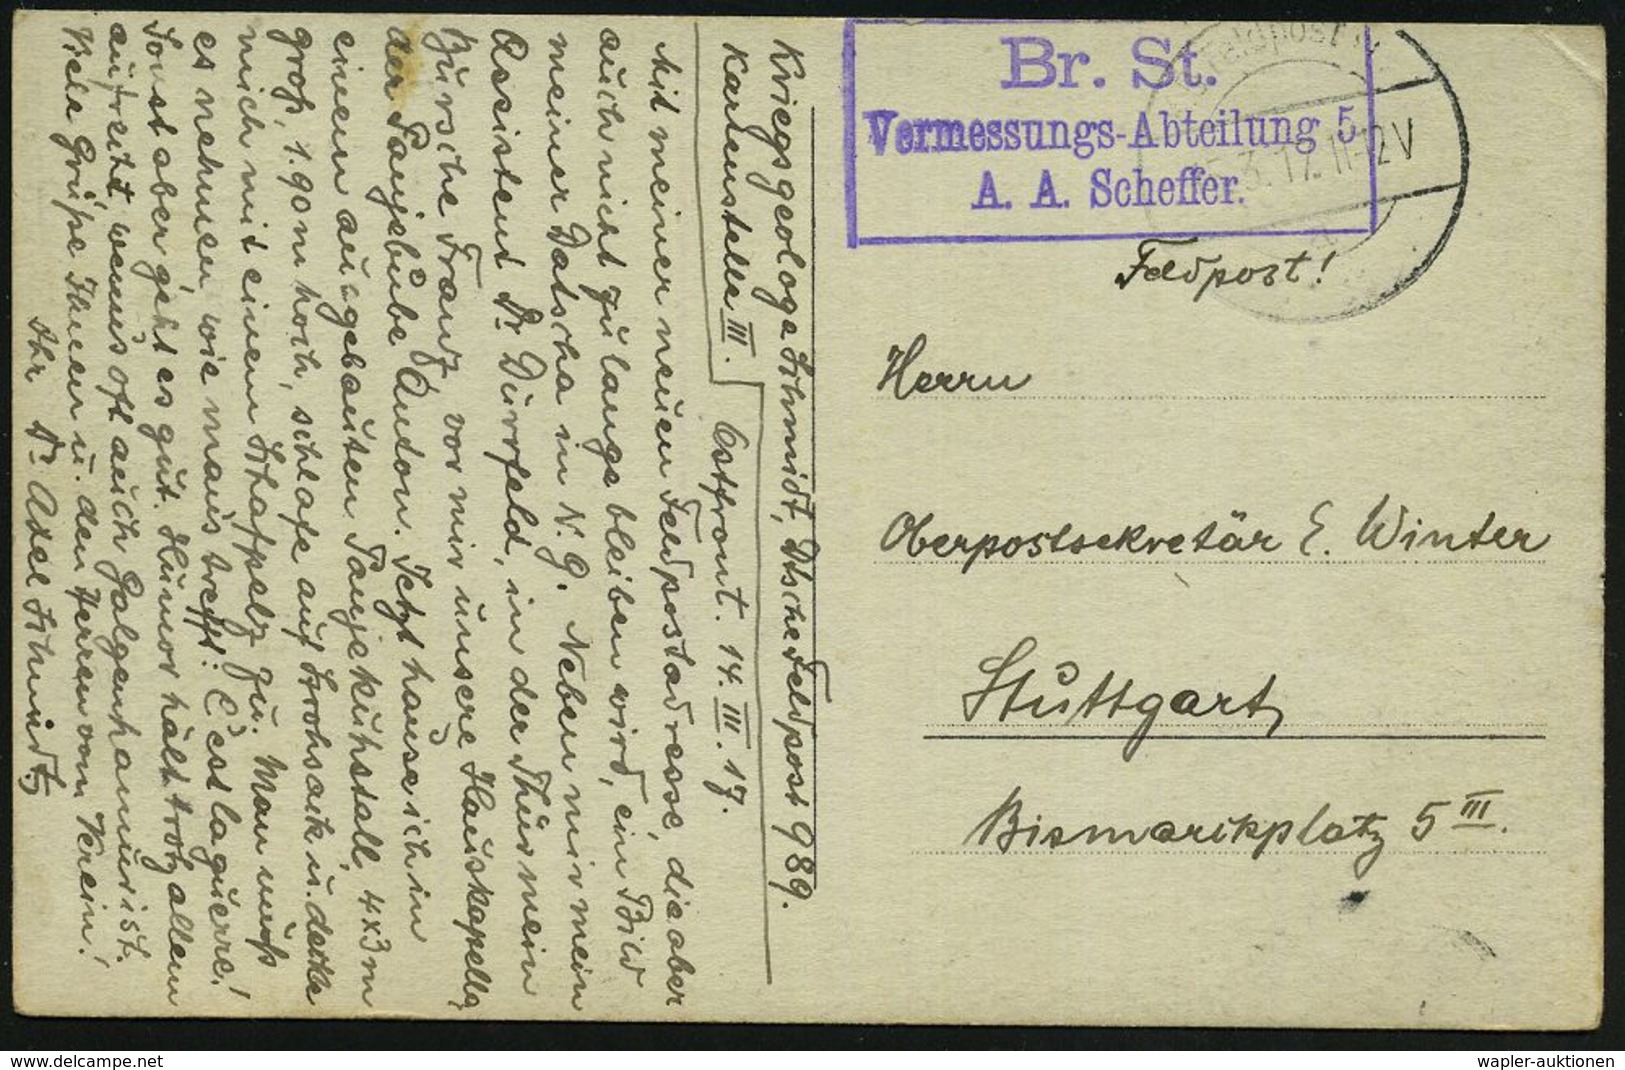 Br. St.
Vermessungs-Abteilung 5
A. A. Scheffer.
Feldpost
3. 17. 11-12V
Feldpost!
Herrn
Oberpostsekretär E. Winter
Stuttgart
Bismarckplatz 5 III.
Kriegsgeologe Schmidt, Dtsche Feldpost 989.
Kartenstelle III.
Ostfront. 14. III. 17.
Mit meiner neuen Feldpostadresse, die aber
auch nicht zu lange bleiben wird, ein Bild
meiner Datscha in N. G. Neben mir mein
Assistent Dr. Dürrfeld, in der Thür mein
Bursche Franz, vor mir unsere Hauskapelle,
der Panjebube Anton. Jetzt hause ich in
einem ausgebauten Panjekuhstall, 4x3 m
groß, 1.90 m hoch, schlafe auf Strohsack u. decke
mich mit einem Schafpelz zu. Man muß
es nehmen wie man's trefft: C'est la guerre!
Sonst aber geht es gut. Humor hält trotz allem
aufrecht, wenns oft auch Galgenhumor ist.
Viele Grüße Ihnen u. den Herren vom Verein!
Ihr Dr. Axel Schmidt.
www.delcampe.net
wapler-auktionen